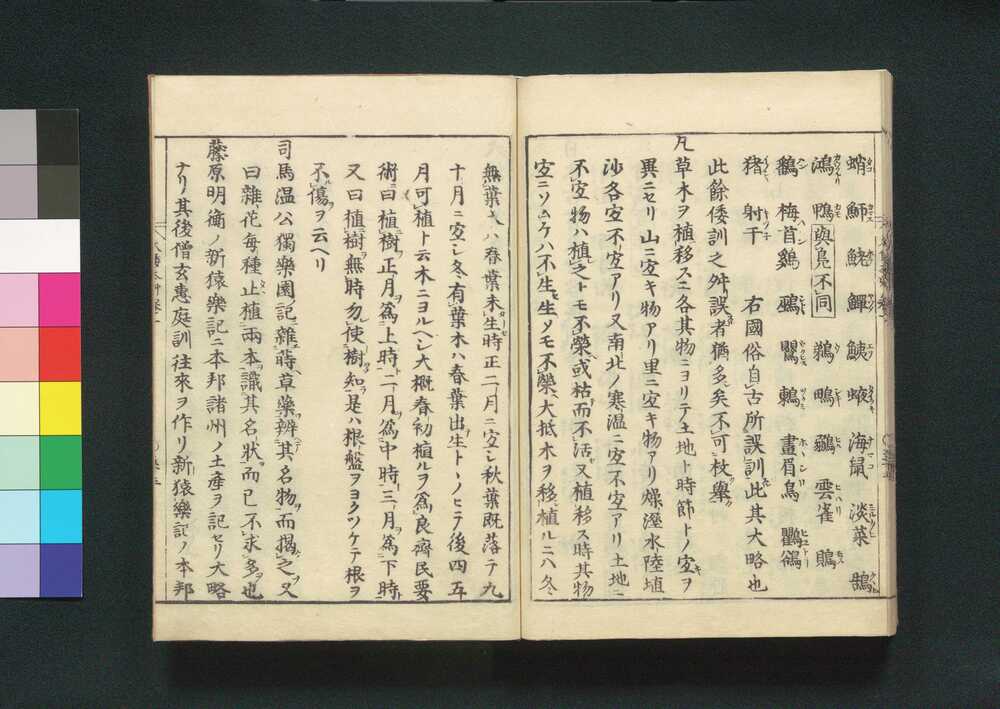 蛸 鰤 鮱 鱓 鮧 蛷 海鼠 淡菜 鵠
鴻 鴨與鳬不同 鵜 鴫 鷂 雲雀 鵙
鸛 梅首鷄 鵐 鷪 鶫 畫眉鳥 鸜鵒
猪 射干 右國俗自古所誤訓此其大略也
此餘倭訓之舛誤者猶多矣不可枚舉
凡草木ヲ植移スニ各其物ニヨリテ土地ト時節トノ宜ヲ
異ニセリ山ニ宜キ物アリ里ニ宜キ物アリ燥溼水陸埴
沙各宜不宜アリ又南北ノ寒温ニ宜不宜アリ土地ニ
不宜物ハ植之トモ不榮或枯而不活又植移ス時其物
宜ニソムケハ不生生ソモ不榮大抵木ヲ移植ルニハ冬
無葉人ハ春葉未生時正二月ニ宜シ秋葉既落テ九
十月ニ宜シ冬有葉木ハ春葉出生トヽノヒテ後四五
月可植ト云木ニヨルヘシ大概春初植ルヲ爲良齊民要
術曰植樹正月爲上時二月爲中時三月爲下時
又曰植樹無時勿使樹知是ハ根盤ヲヨクツケテ根ヲ
不傷ヲ云ヘリ
司馬温公獨樂園記雜蒔草藥辨其名物而揭之又
曰雜花毎種止植兩本識其名状而已不求多也
藤原明衡ノ新猿樂記ニ本邦諸州ノ土産ヲ記セリ大略
ナリ其後僧玄惠庭訓往來ヲ作リ新猿樂記ノ本邦